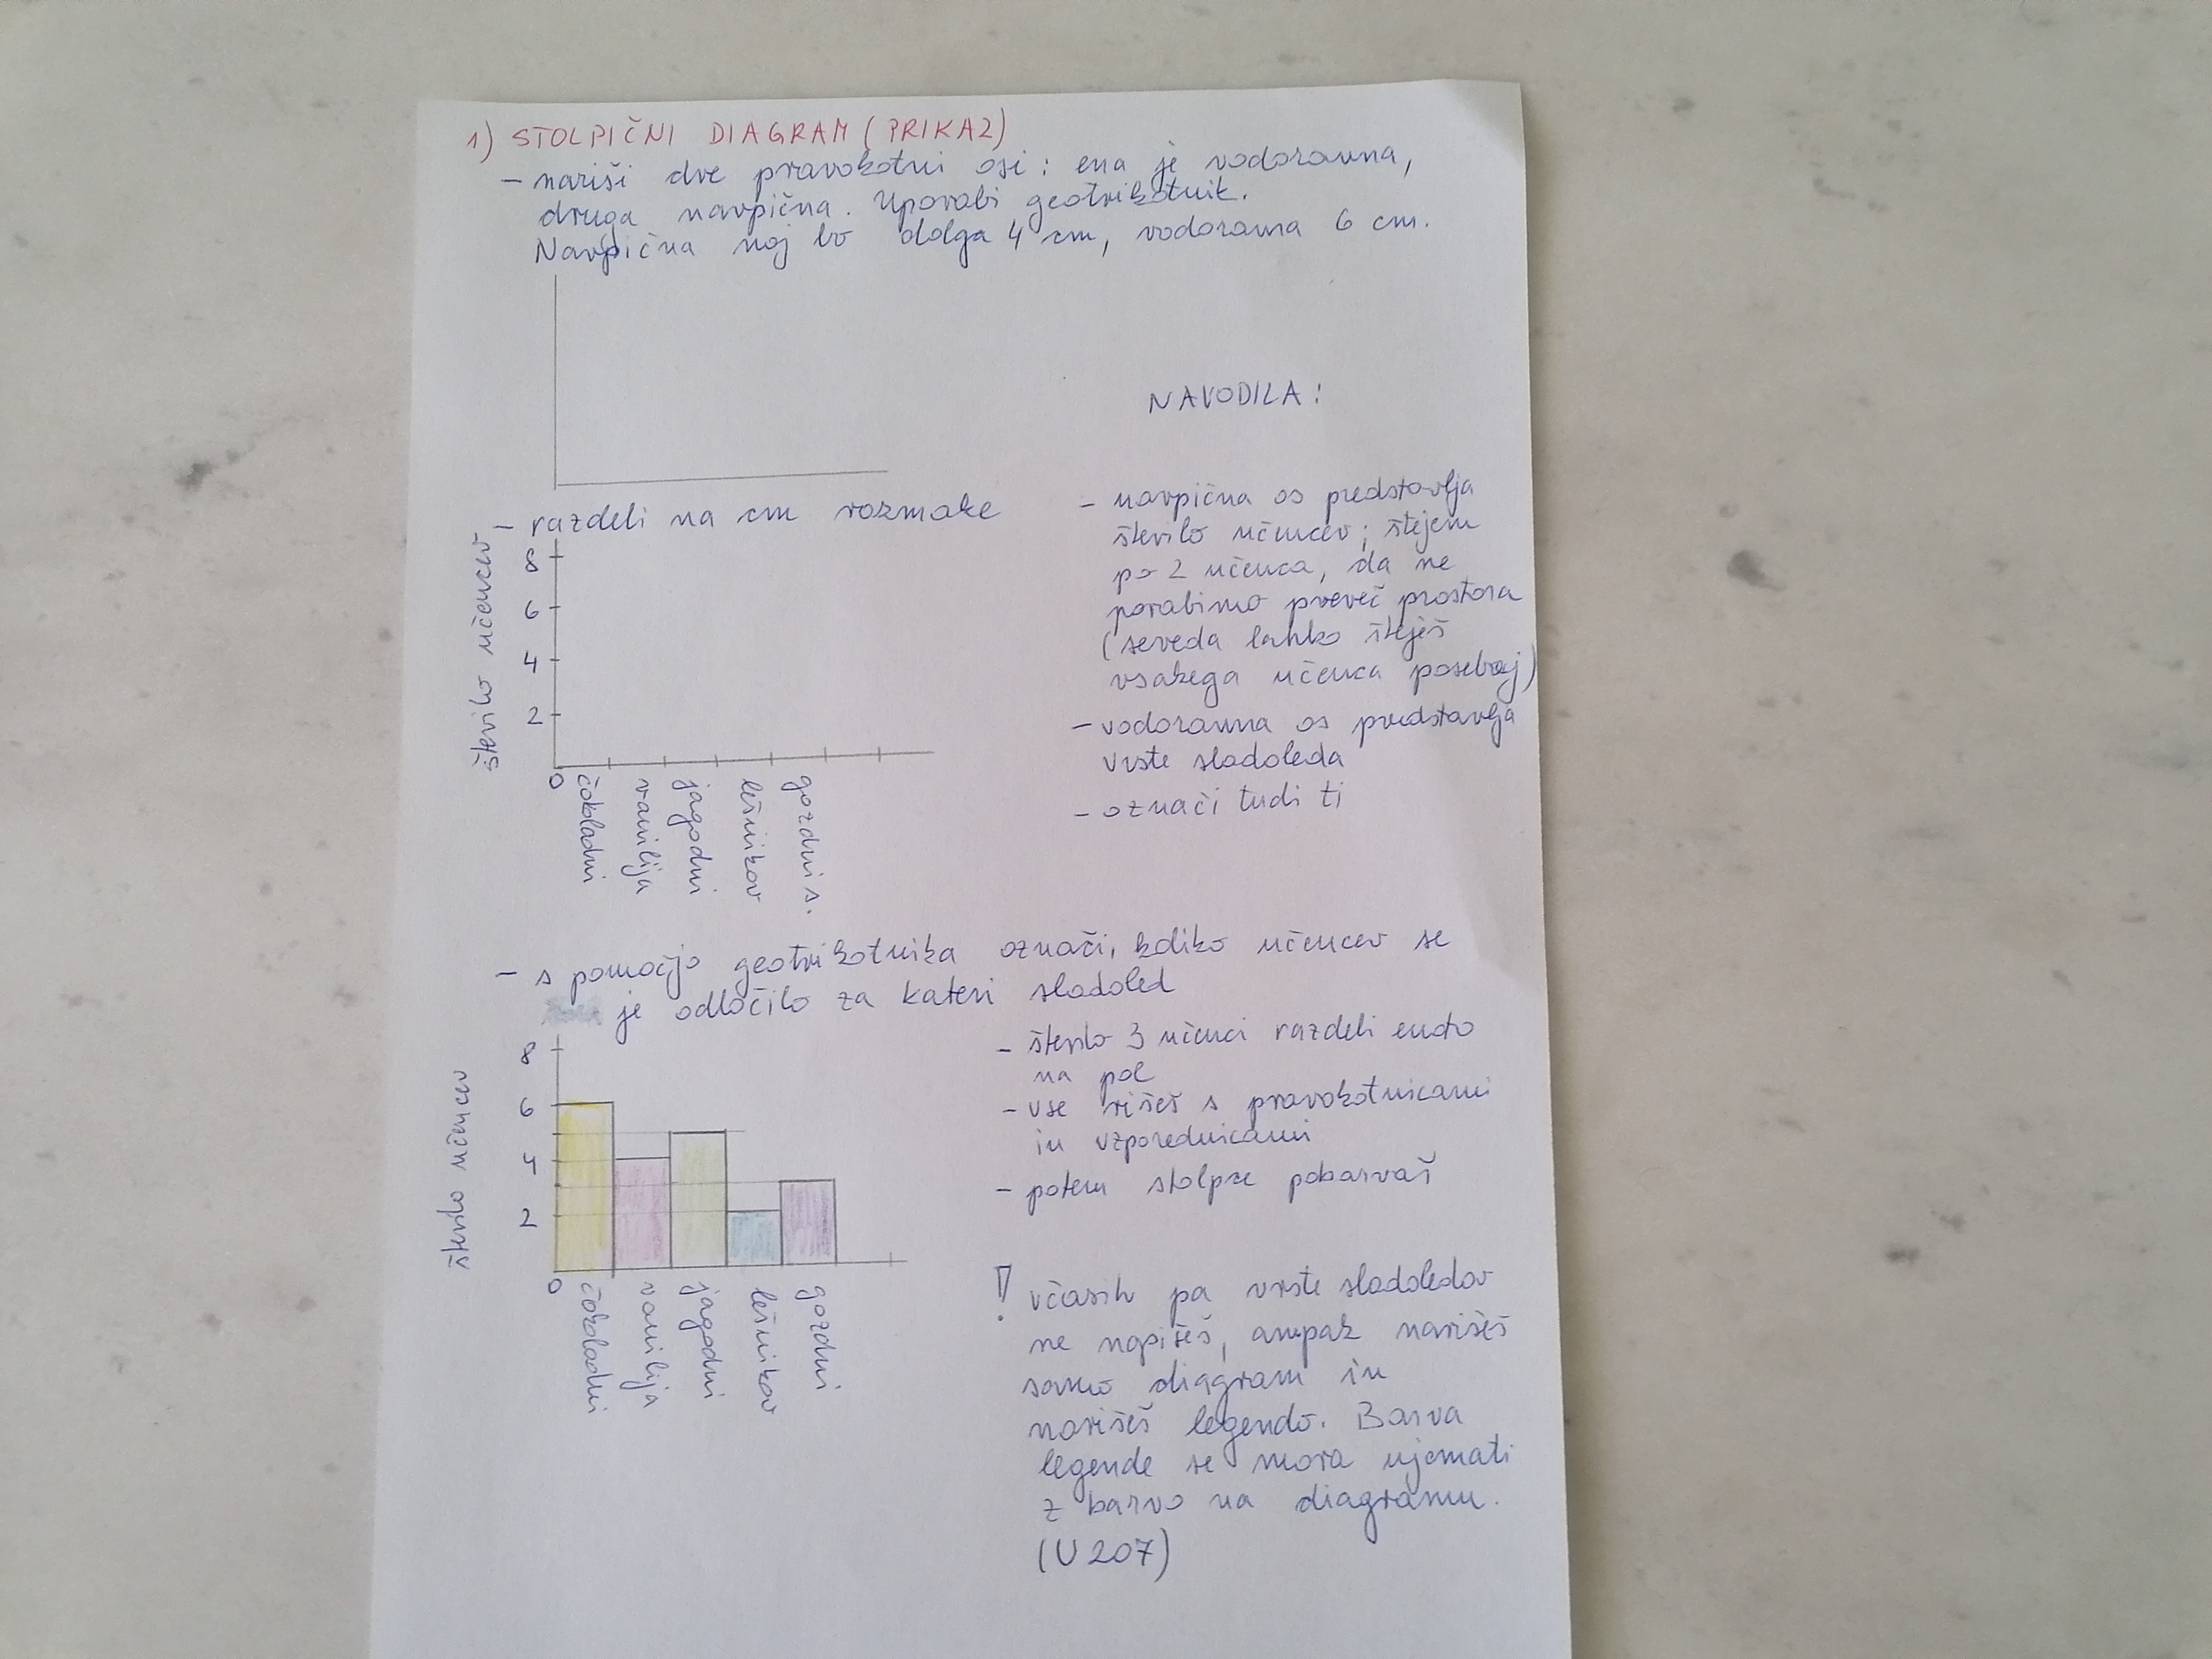 1) STOLPIČNI DIAGRAM (PRIKAZ)
- nariši dve pravokotni osi: ena je vodoravna,
druga navpična. Uporabi geotrikotnik.
Navpična naj bo dolga 4 cm, vodoravna 6 cm.
NAVODILA:
- razdeli na cm razmake
število učencev
8
6
4
2
0
čokoladni
vanilija
jagodni
lešnikov
gozdni s.
- navpična os predstavlja
število učencev; štejem
po 2 učenca, da ne
porabimo preveč prostora
(seveda lahko štješ
vsakega učenca posebej)
- vodoravna os predstavlja
vrste sladoleda
- označi tudi ti
- s pomočjo geotrikotnika označi, koliko učencev se
je odločilo za kateri sladoled
število učencev
8
6
4
2
0
čokoladni
vanilija
jagodni
lešnikov
gozdni
- število 3 učenci razdeli enoto
na pol
- vse rišeš s pravokotnicami
in vzporednicami
- potem stolpce pobarvaš
! včasih pa vrste sladoledov
ne napišeš, ampak narišeš
samo diagram in
narišeš legendo. Barva
legende se mora ujemati
z barvo na diagramu.
(U 207)